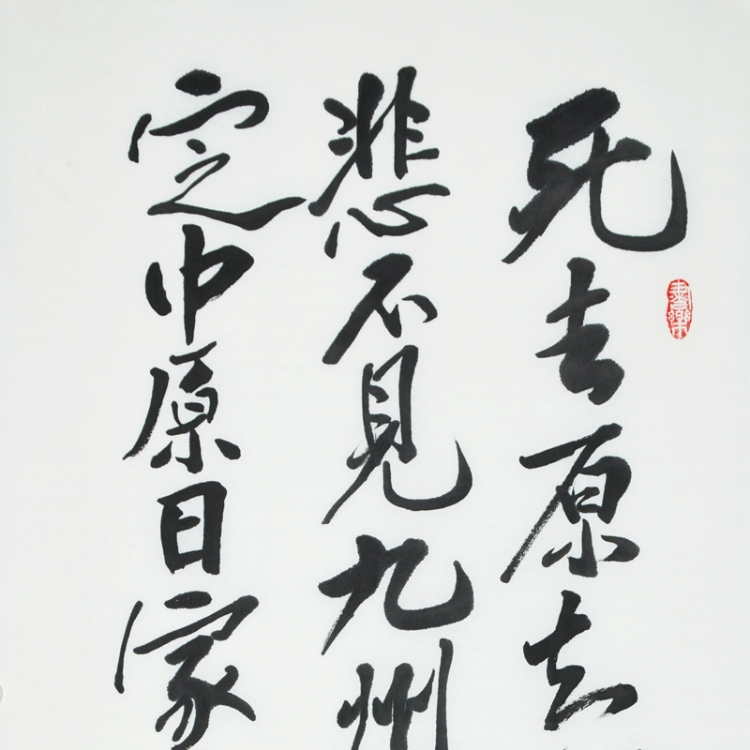 死去原知
悲不見九州
定中原日家